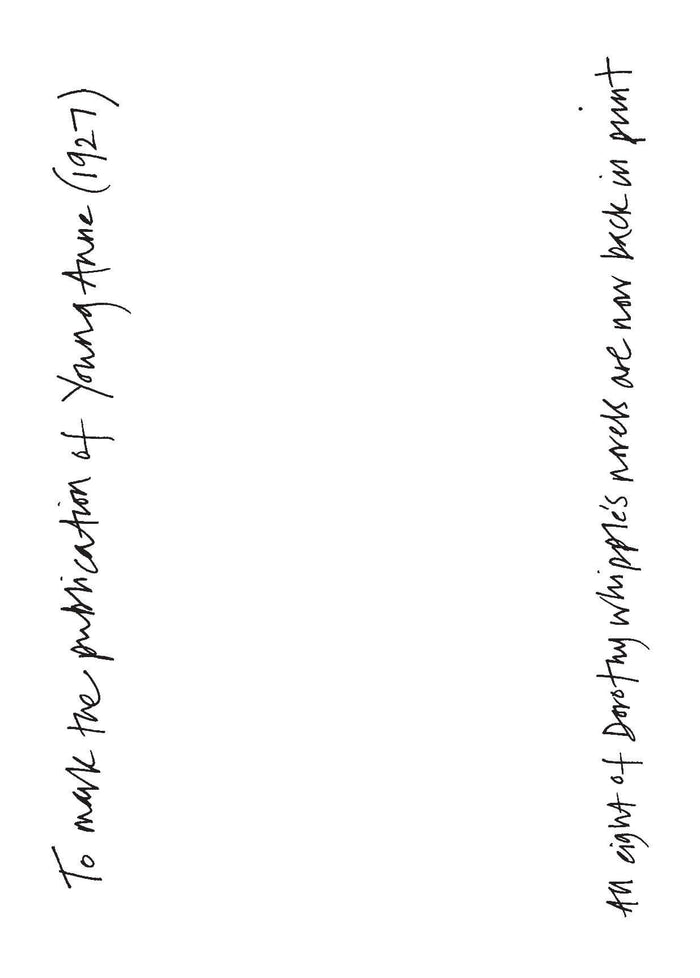 To mark the publication of Young Anne (1927)
All eight of Dorothy Whipple's novels are now back in print